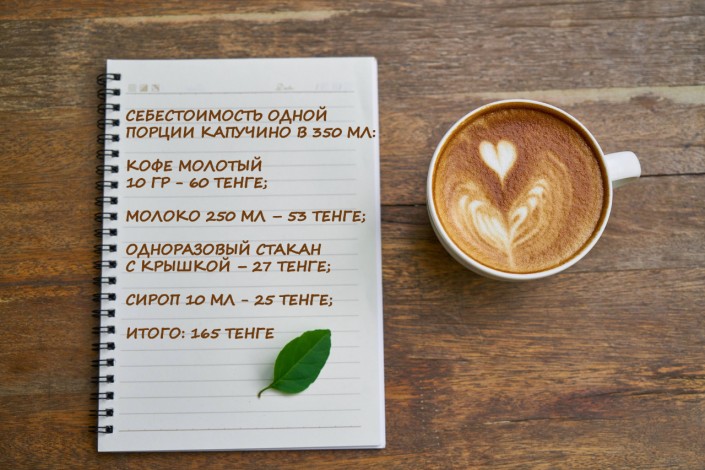 СЕБЕСТОИМОСТЬ ОДНОЙ
ПОРЦИИ КАПУЧИНО В 350 МЛ:
КОФЕ МОЛОТЫЙ
10 ГР - 60 ТЕНГЕ;
МОЛОКО 250 МЛ – 53 ТЕНГЕ;
ОДНОРАЗОВЫЙ СТАКАН
С КРЫШКОЙ – 27 ТЕНГЕ;
СИРОП 10 МЛ - 25 ТЕНГЕ;
ИТОГО: 165 ТЕНГЕ